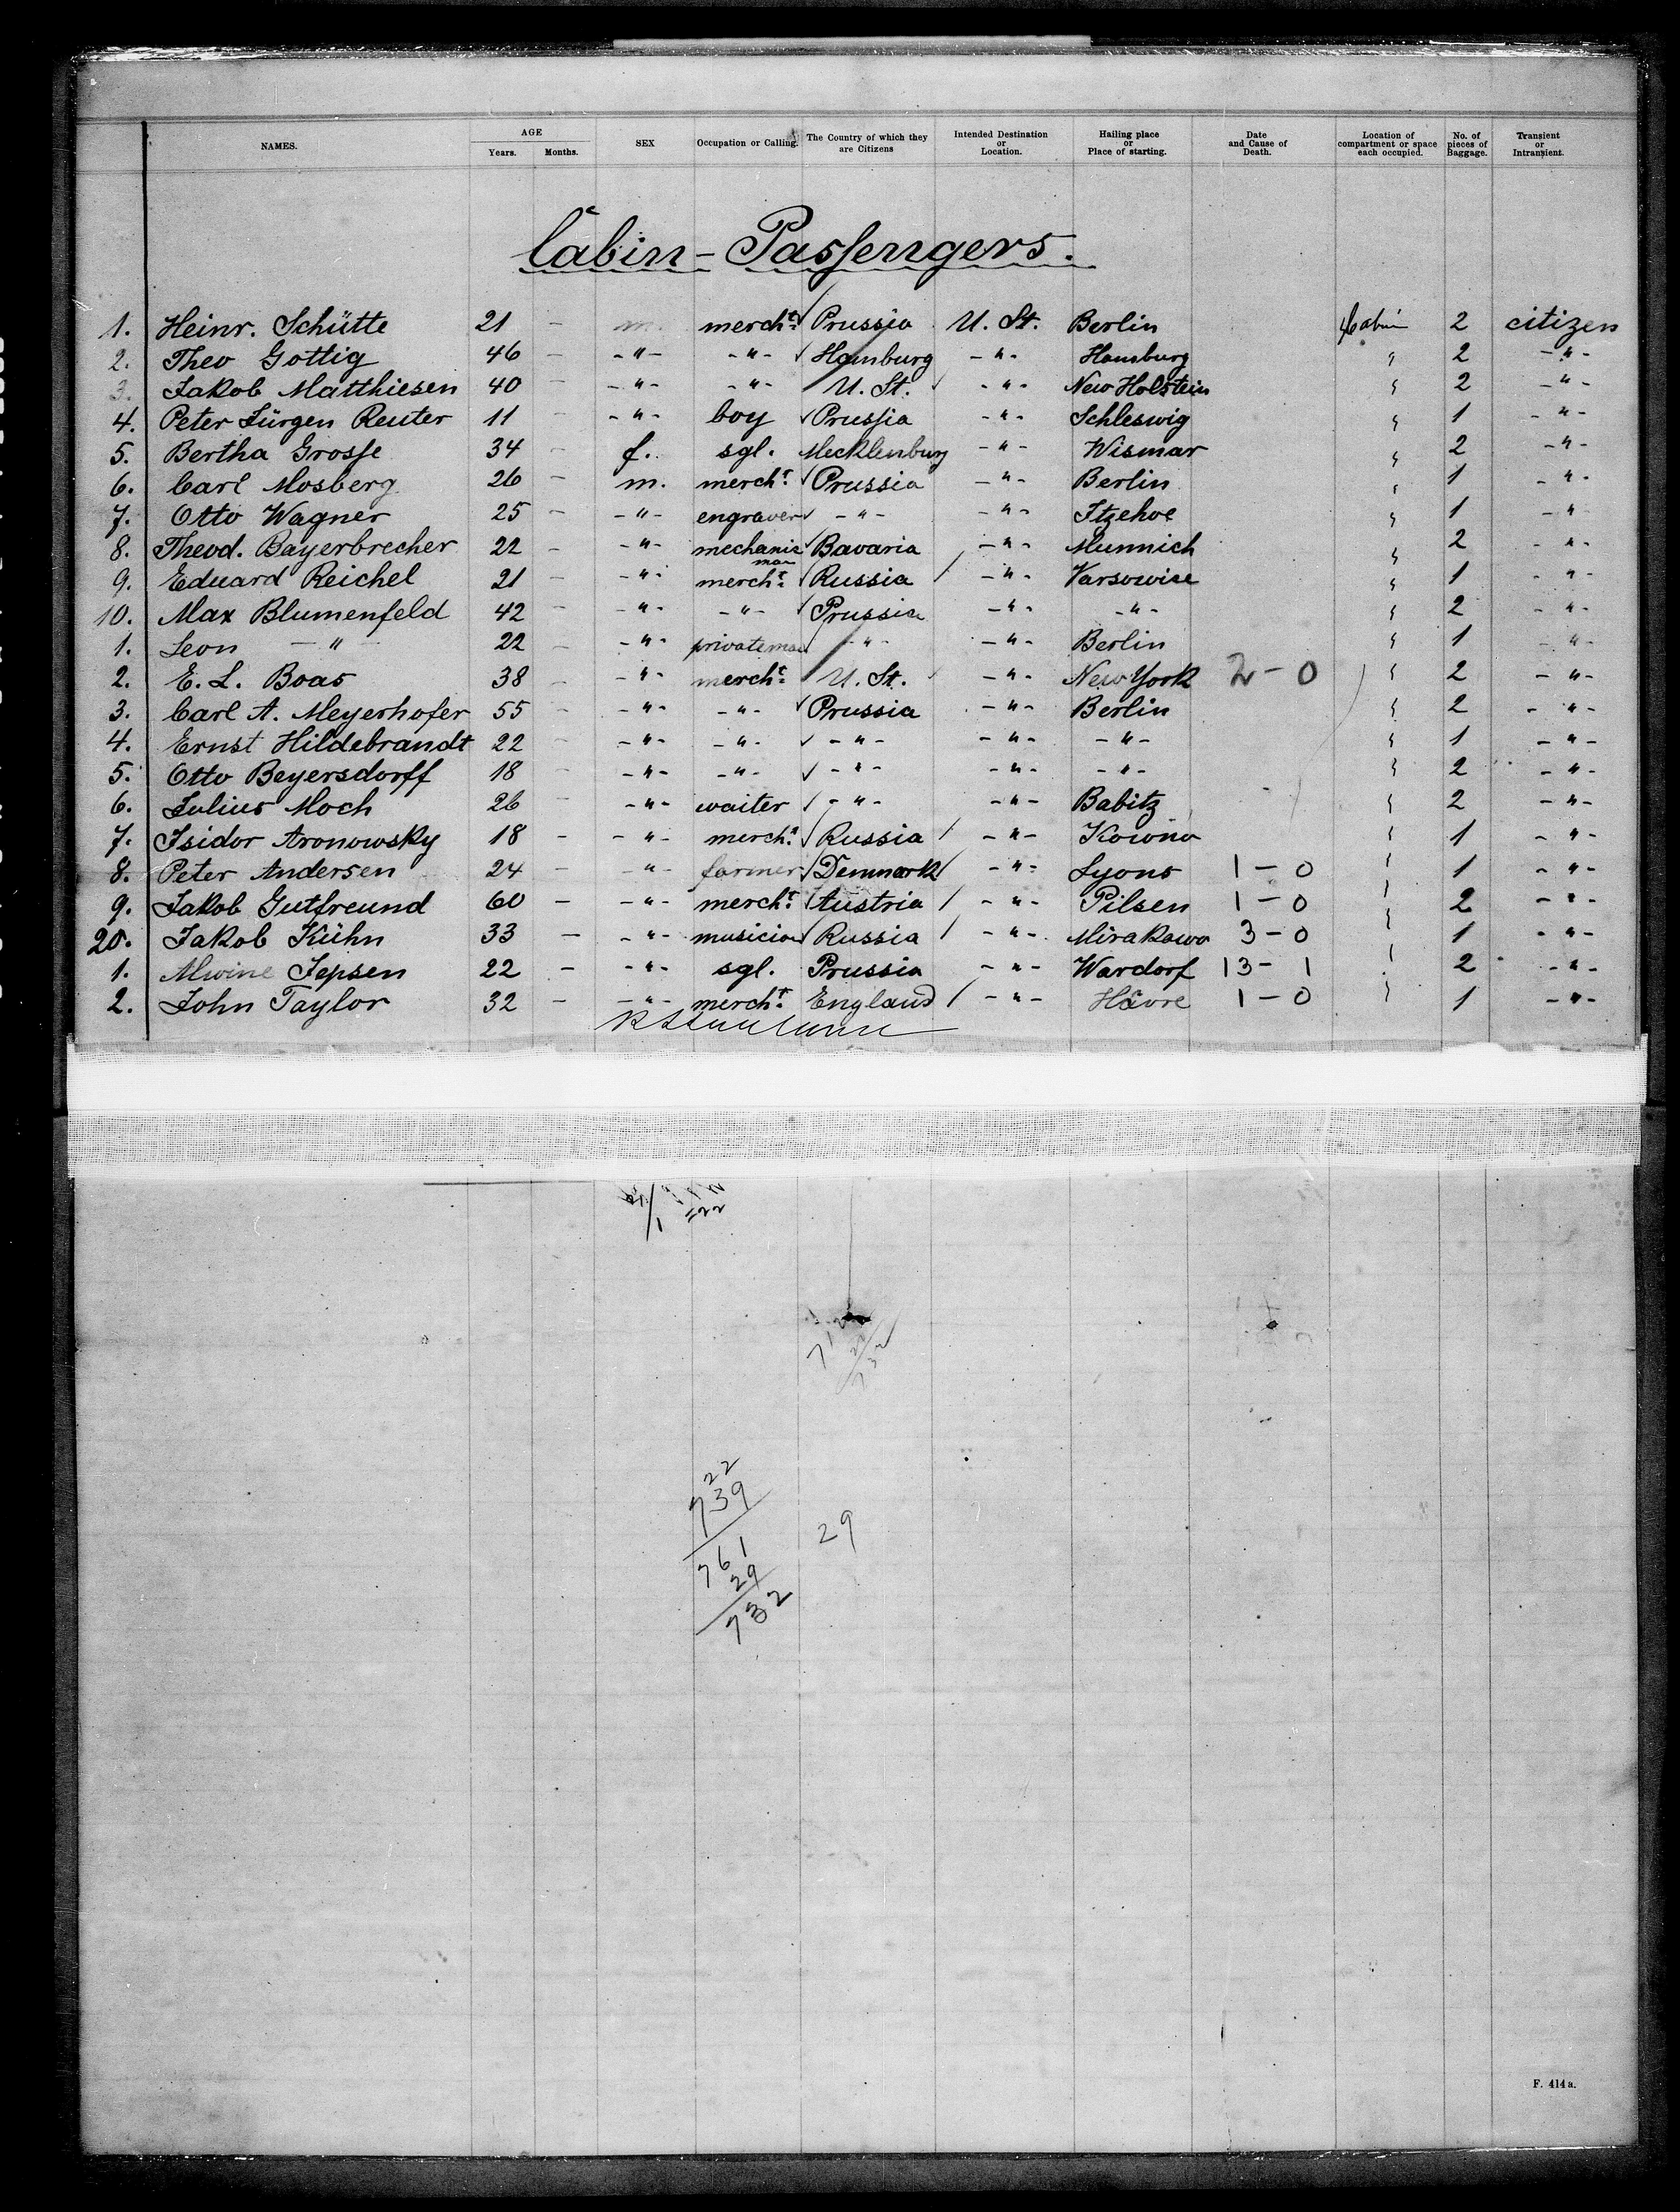 NAMES. AGE Years. Months. SEX Occupation or Calling. The Country of which they are Citizens Intended Destination or Location. Hailing place or Place of starting. Date and Cause of Death. Location of compartment or space each occupied. No. of pieces of Baggage. Transient or Intransient.
Cabin-Passengers.
1. Heinr. Schütte 21 - m. mercht. Prussia U. St. Berlin Cabin 2 citizen
2. Theo Gottig 46 - -"- -"- Hamburg -"- Hamburg " 2 -"-
3. Jakob Matthiesen 40 - -"- -"- U. St. -"- New Holstein " 2 -"-
4. Peter Jürgen Reuter 11 - -"- boy Prussia -"- Schleswig " 1 -"-
5. Bertha Grosse 34 - f. sgl. Mecklenburg -"- Wismar " 2 -"-
6. Carl Mosberg 26 - m. mercht. Prussia -"- Berlin " 1 -"-
7. Otto Wagner 25 - -"- engraver -"- -"- Itzehoe " 1 -"-
8. Theod. Bayerbrecher 22 - -"- mechanic Bavaria -"- Munnich " 2 -"-
man
9. Eduard Reichel 21 - -"- mercht. Russia -"- Varsowise " 1 -"-
10. Max Blumenfeld 42 - -"- -"- Prussia -"- -"- " 2 -"-
1. Leon -"- 22 - -"- privateman -"- -"- Berlin " 1 -"-
2. E. L. Boas 38 - -"- mercht. U. St. -"- New York 2-0 " 2 -"-
3. Carl A. Meyerhofer 55 - -"- -"- Prussia -"- Berlin " 2 -"-
4. Ernst Hildebrandt 22 - -"- -"- -"- -"- -"- " 1 -"-
5. Otto Beyersdorff 18 - -"- -"- -"- -"- -"- " 2 -"-
6. Julius Moch 26 - -"- waiter -"- -"- Babitz " 2 -"-
7. Isidor Aronowsky 18 - -"- mercht. Russia -"- Kowno " 1 -"-
8. Peter Andersen 24 - -"- farmer Denmark -"- Lyons 1-0 " 1 -"-
9. Jakob Gutfreund 60 - -"- mercht. Austria -"- Pilsen 1-0 " 2 -"-
20. Jakob Kühn 33 - -"- musician Russia -"- Mirakowo 3-0 " 1 -"-
1. Alwine Jepsen 22 - -"- sgl. Prussia -"- Wardorf 13-1 " 2 -"-
2. John Taylor 32 - -"- mercht. England -"- Havre 1-0 " 1 -"-
22
739
761
29
732
29
F. 414 a.